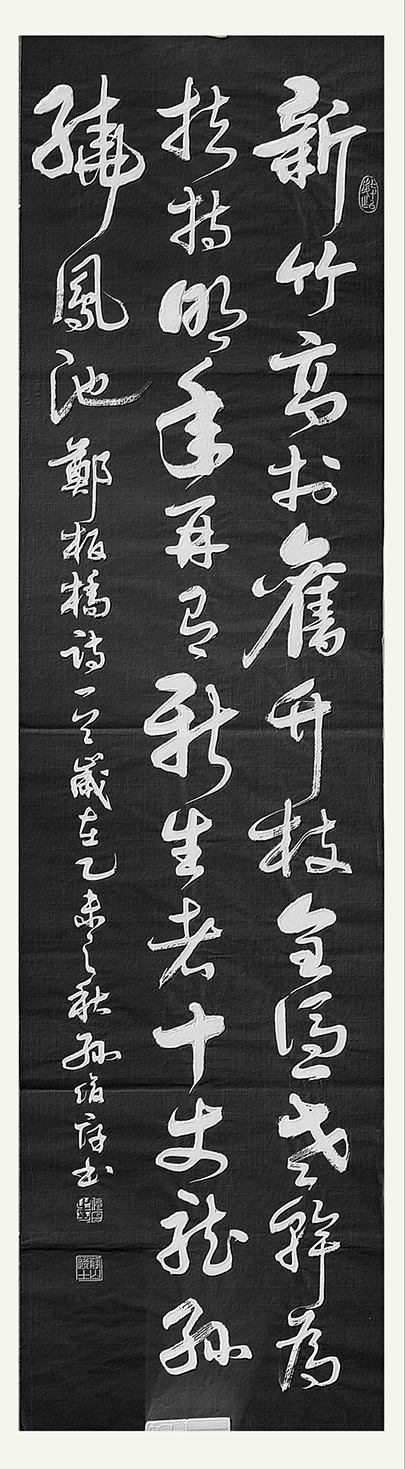 新竹高於舊竹枝全憑老幹為
扶持明年再有新生者十丈龍孫
繞鳳池 鄭板橋詩一首 歲在乙未之秋 孫